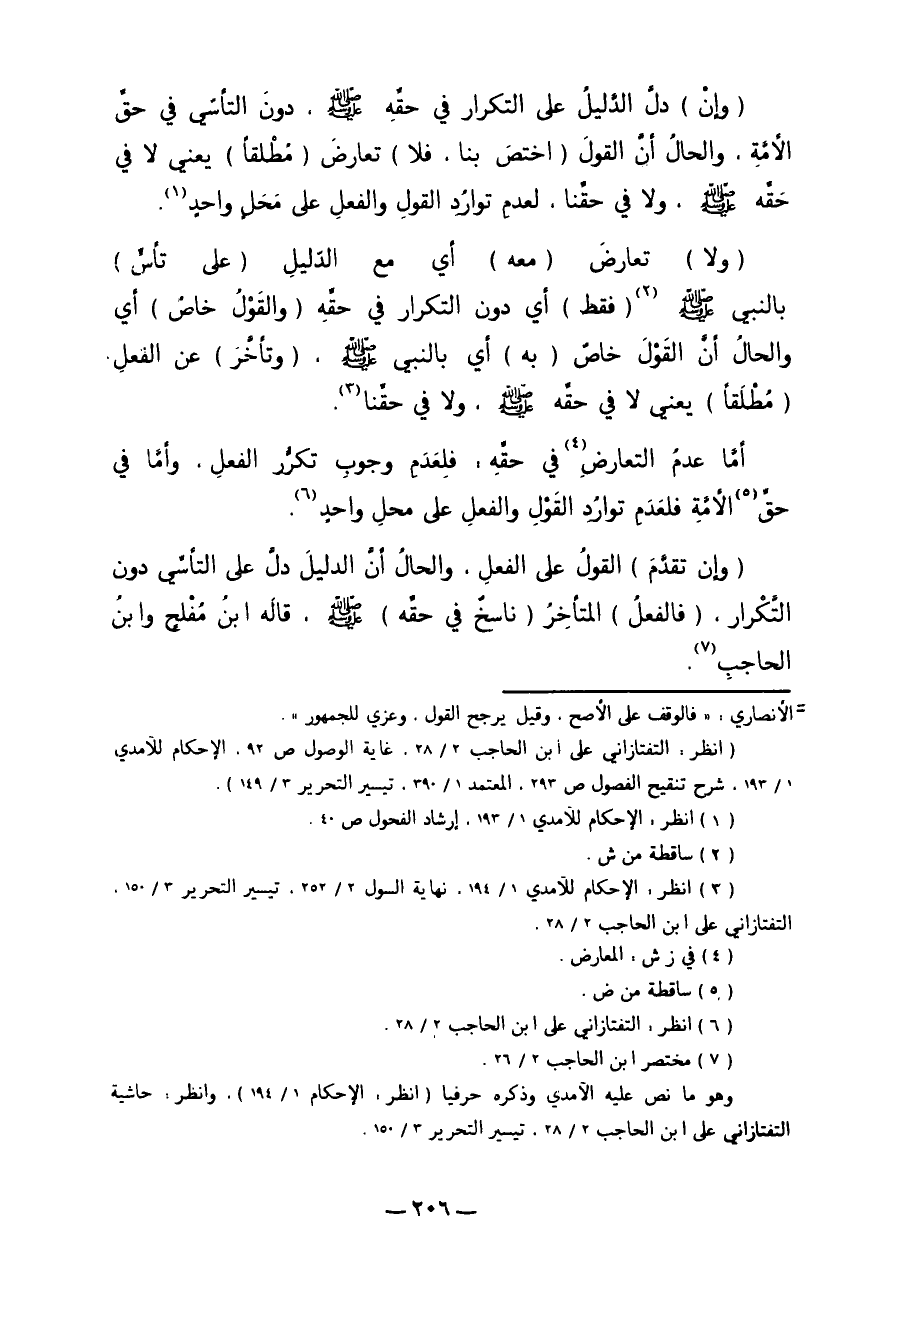 ( وإنْ ) دلَّ الدَّليلُ على التكرار في حقِّهِ ﷺ ، دونَ التأسّي في حقِّ
الأمَّةِ ، والحالُ أنَّ القولَ ( اختصَ بنا ، فلا ) تعارضَ ( مُطْلقاً ) يعني لا في
حَقِّه ﷺ ، ولا في حقِّنا ، لعدمِ توارُدِ القولِ والفعلِ على مَحَلٍ واحدٍ(١).
( ولا ) تعارضَ ( معه ) أي مع الدّليلِ ( على تأسٍّ )
بالنبي ﷺ (٢)( فقط ) أي دون التكرار في حقِّهِ ( والقَوْلُ خاصٌ ) أي
والحالُ أنَّ القَوْلَ خاصٌ ( به ) أي بالنبي ﷺ ، ( وتأخَّرَ ) عن الفعلِ
( مُطْلَقاً ) يعني لا في حقِّه ﷺ ، ولا في حقِّنا(٣).
أمَّا عدمُ التعارضِ(٤)في حقِّهِ : فلِعَدَمِ وجوبِ تكرُّرِ الفعلِ ، وأمَّا في
حقِّ(٥)الأمَّةِ فلعَدَمِ توارُدِ القَوْلِ والفعلِ على محلٍ واحدٍ(٦).
( وإن تقدَّمَ ) القولُ على الفعلِ ، والحالُ أنَّ الدليلَ دلَّ على التأسّي دون
التَّكْرار ، ( فالفعلُ ) المتأخِرُ ( ناسخٌ في حقِّه ) ﷺ ، قالَه ابنُ مُفْلحٍ وابنُ
الحاجبِ(٧).
= الأنصاري : « فالوقف على الأصح ، وقيل يرجح القول ، وعزي للجمهور » .
( انظر : التفتازاني على ابن الحاجب ٢ / ٢٨ ، غاية الوصول ص ٩٢ ، الإحكام للآمدي
١ / ١٩٣ ، شرح تنقيح الفصول ص ٢٩٣ ، المعتمد ١ / ٣٩٠ ، تيسير التحرير ٣ / ١٤٩ ) .
( ١ ) انظر : الإحكام للآمدي ١ / ١٩٣ ، إرشاد الفحول ص ٤٠ .
( ٢ ) ساقطة من ش .
( ٣ ) انظر : الإحكام للآمدي ١ / ١٩٤ ، نهاية السول ٢ / ٢٥٢ ، تيسير التحرير ٣ / ١٥٠ ،
التفتازاني على ابن الحاجب ٢ / ٢٨ .
( ٤ ) في ز ش : المعارض .
( ٥ ) ساقطة من ض .
( ٦ ) انظر : التفتازاني على ابن الحاجب ٢ / ٢٨ .
( ٧ ) مختصر ابن الحاجب ٢ / ٢٦ .
وهو ما نص عليه الآمدي وذكره حرفيا ( انظر : الإحكام ١ / ١٩٤ ) ، وانظر : حاشية
التفتازاني على ابن الحاجب ٢ / ٢٨ ، تيسير التحرير ٣ / ١٥٠ .
— ٢٠٦ —